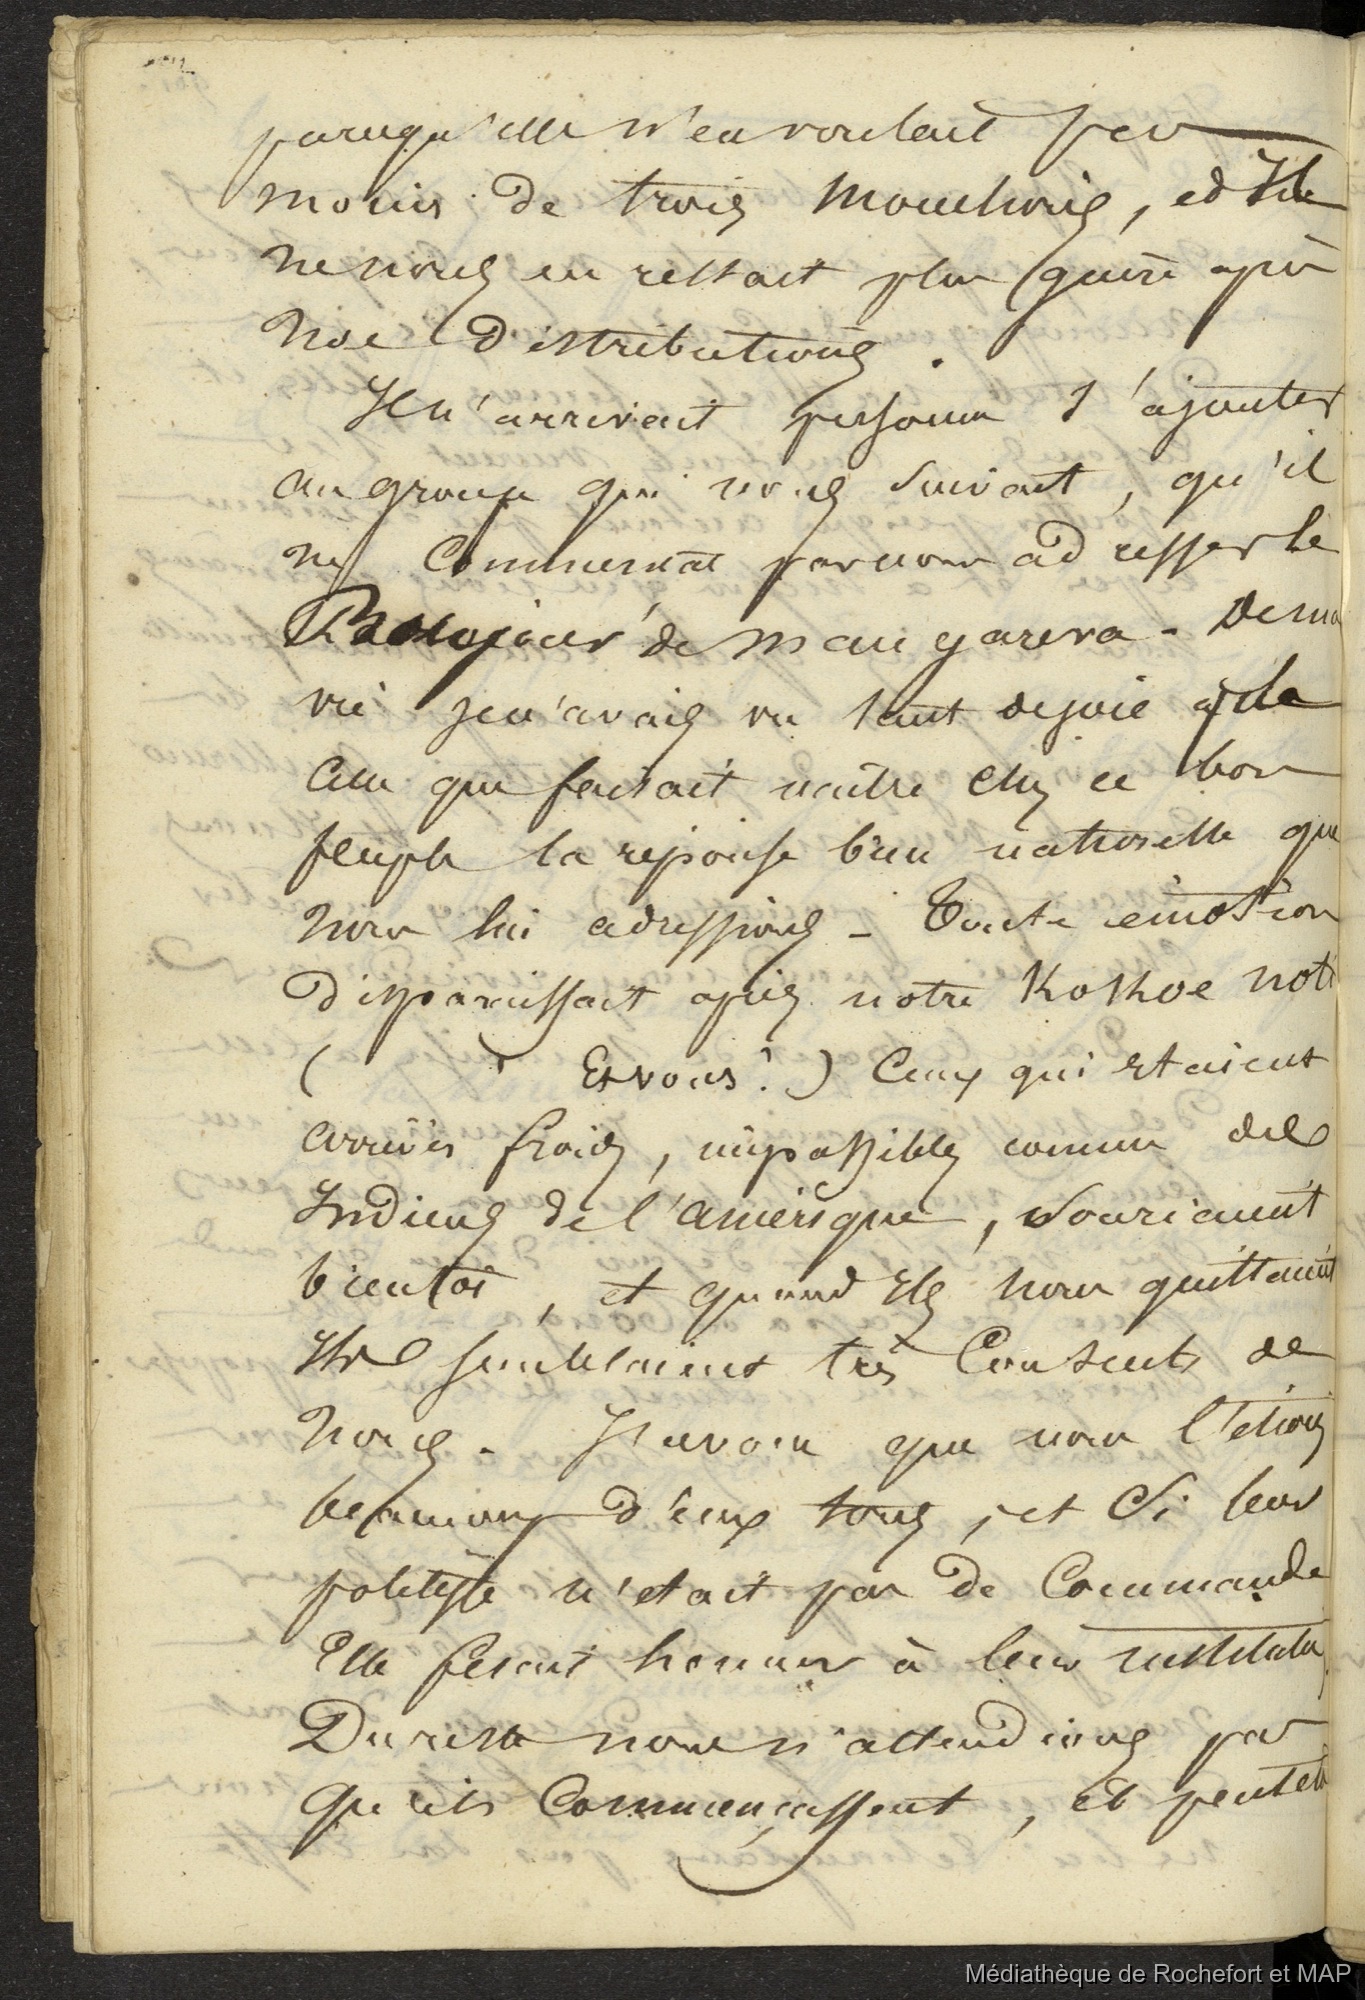 parcequ'elle n'en voulait pas
moins de trois mouchoirs, et Il
ne nous en restait plus guère après
nos distributions.
Il n'arrivait personne s'ajouter
au groupe qui nous suivait, qu'il
ne commençat par nous adresser le
Bonjour de mangareva - De ma
vie je n'avais vu tant de joie que
celle que faisait naitre chez ce bon
peuple la reponse bien naturelle que
nous lui adressions - Toute émotion
disparaissait après notre Kokoe noti
( Et vous ? ) Ceux qui etaient
arrivés froids, impassibles comme des
Indiens de l'amérique, souriaient
bientot, et quand Ils nous quittaient
Ils semblaient très Contents de
nous. J'avoue que nous l'étions
beaucoup d'eux tous, et Si leur
politesse n'etait pas de Commande
Elle fesait honneur à leur
Du reste nous n'attendions pas
qu'ils Commençassent, et peutetre
Médiathèque de Rochefort et MAP